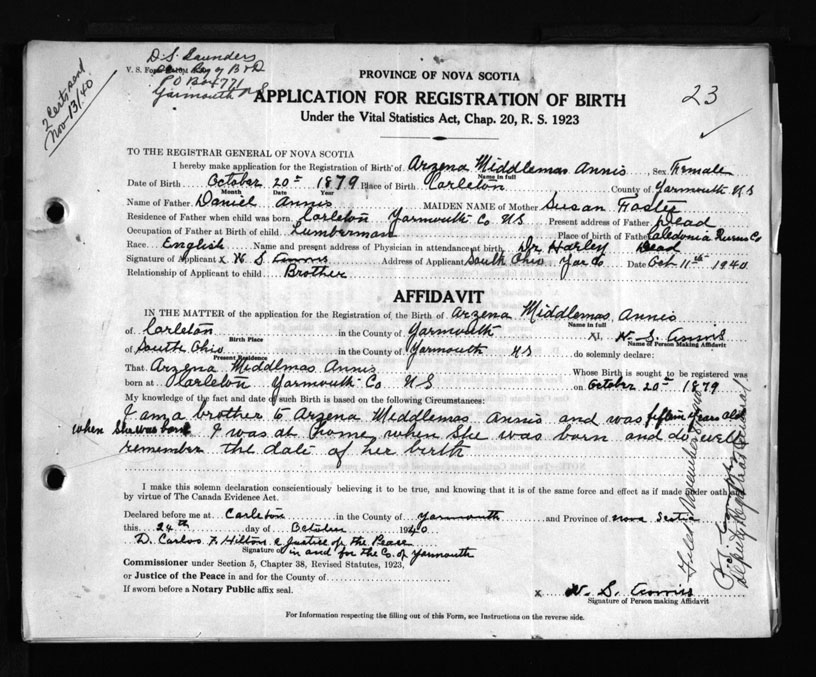 D. S. Saunders
V. S. Form
Reg of B & D
P O Box 771
Yarmouth N. S.
2 Certs
Nov 13/40
23
PROVINCE OF NOVA SCOTIA
APPLICATION FOR REGISTRATION OF BIRTH
Under the Vital Statistics Act, Chap. 20, R. S. 1923
TO THE REGISTRAR GENERAL OF NOVA SCOTIA
I hereby make application for the Registration of Birth of Arzena Middlemas Annis Sex Female
Name in full
Date of Birth October 20th 1879 Place of Birth Carleton County of Yarmouth N S
Month Date Year
Name of Father Daniel Annis MAIDEN NAME of Mother Susan
Residence of Father when child was born Carleton Yarmouth Co N S Present address of Father Dead
Occupation of Father at Birth of child Lumberman Place of birth of Father Caledonia Queens Co
Race English Name and present address of Physician in attendance at birth Dr Harley Dead
Signature of Applicant x W S Annis Address of Applicant South Ohio Yar Co Date Oct 11th 1940
Relationship of Applicant to child Brother
AFFIDAVIT
IN THE MATTER of the application for the Registration of the Birth of Arzena Middlemas Annis
Name in full
of Carleton in the County of Yarmouth I, W. S. Annis
Birth Place Name of Person Making Affidavit
of South Ohio in the County of Yarmouth N S do solemnly declare:
Present Residence
That Arzena Middlmas Annis Whose Birth is sought to be registered was
born at Carleton Yarmouth Co N S on October 20th 1879
My knowledge of the fact and date of such Birth is based on the following Circumstances:
I am a brother to Arzena Middlemas Annis and was fifteen years old
when she was born I was at home when she was born and do well
remember the date of her birth
I make this solemn declaration conscientiously believing it to be true, and knowing that it is of the same force and effect as if made under oath and
by virtue of The Canada Evidence Act.
Declared before me at Carleton in the County of Yarmouth and Province of Nova Scotia
this 24th day of October 1940
D. Carlos F. Hilton a Justice of the Peace
Signature of in and for the Co. of Yarmouth
Commissioner under Section 5, Chapter 38, Revised Statutes, 1923,
or Justice of the Peace in and for the County of
If sworn before a Notary Public affix seal.
x W. S. Annis
Signature of Person making Affidavit
For Information respecting the filling out of this Form, see Instructions on the reverse side.
Filed November
Deputy Registrar General